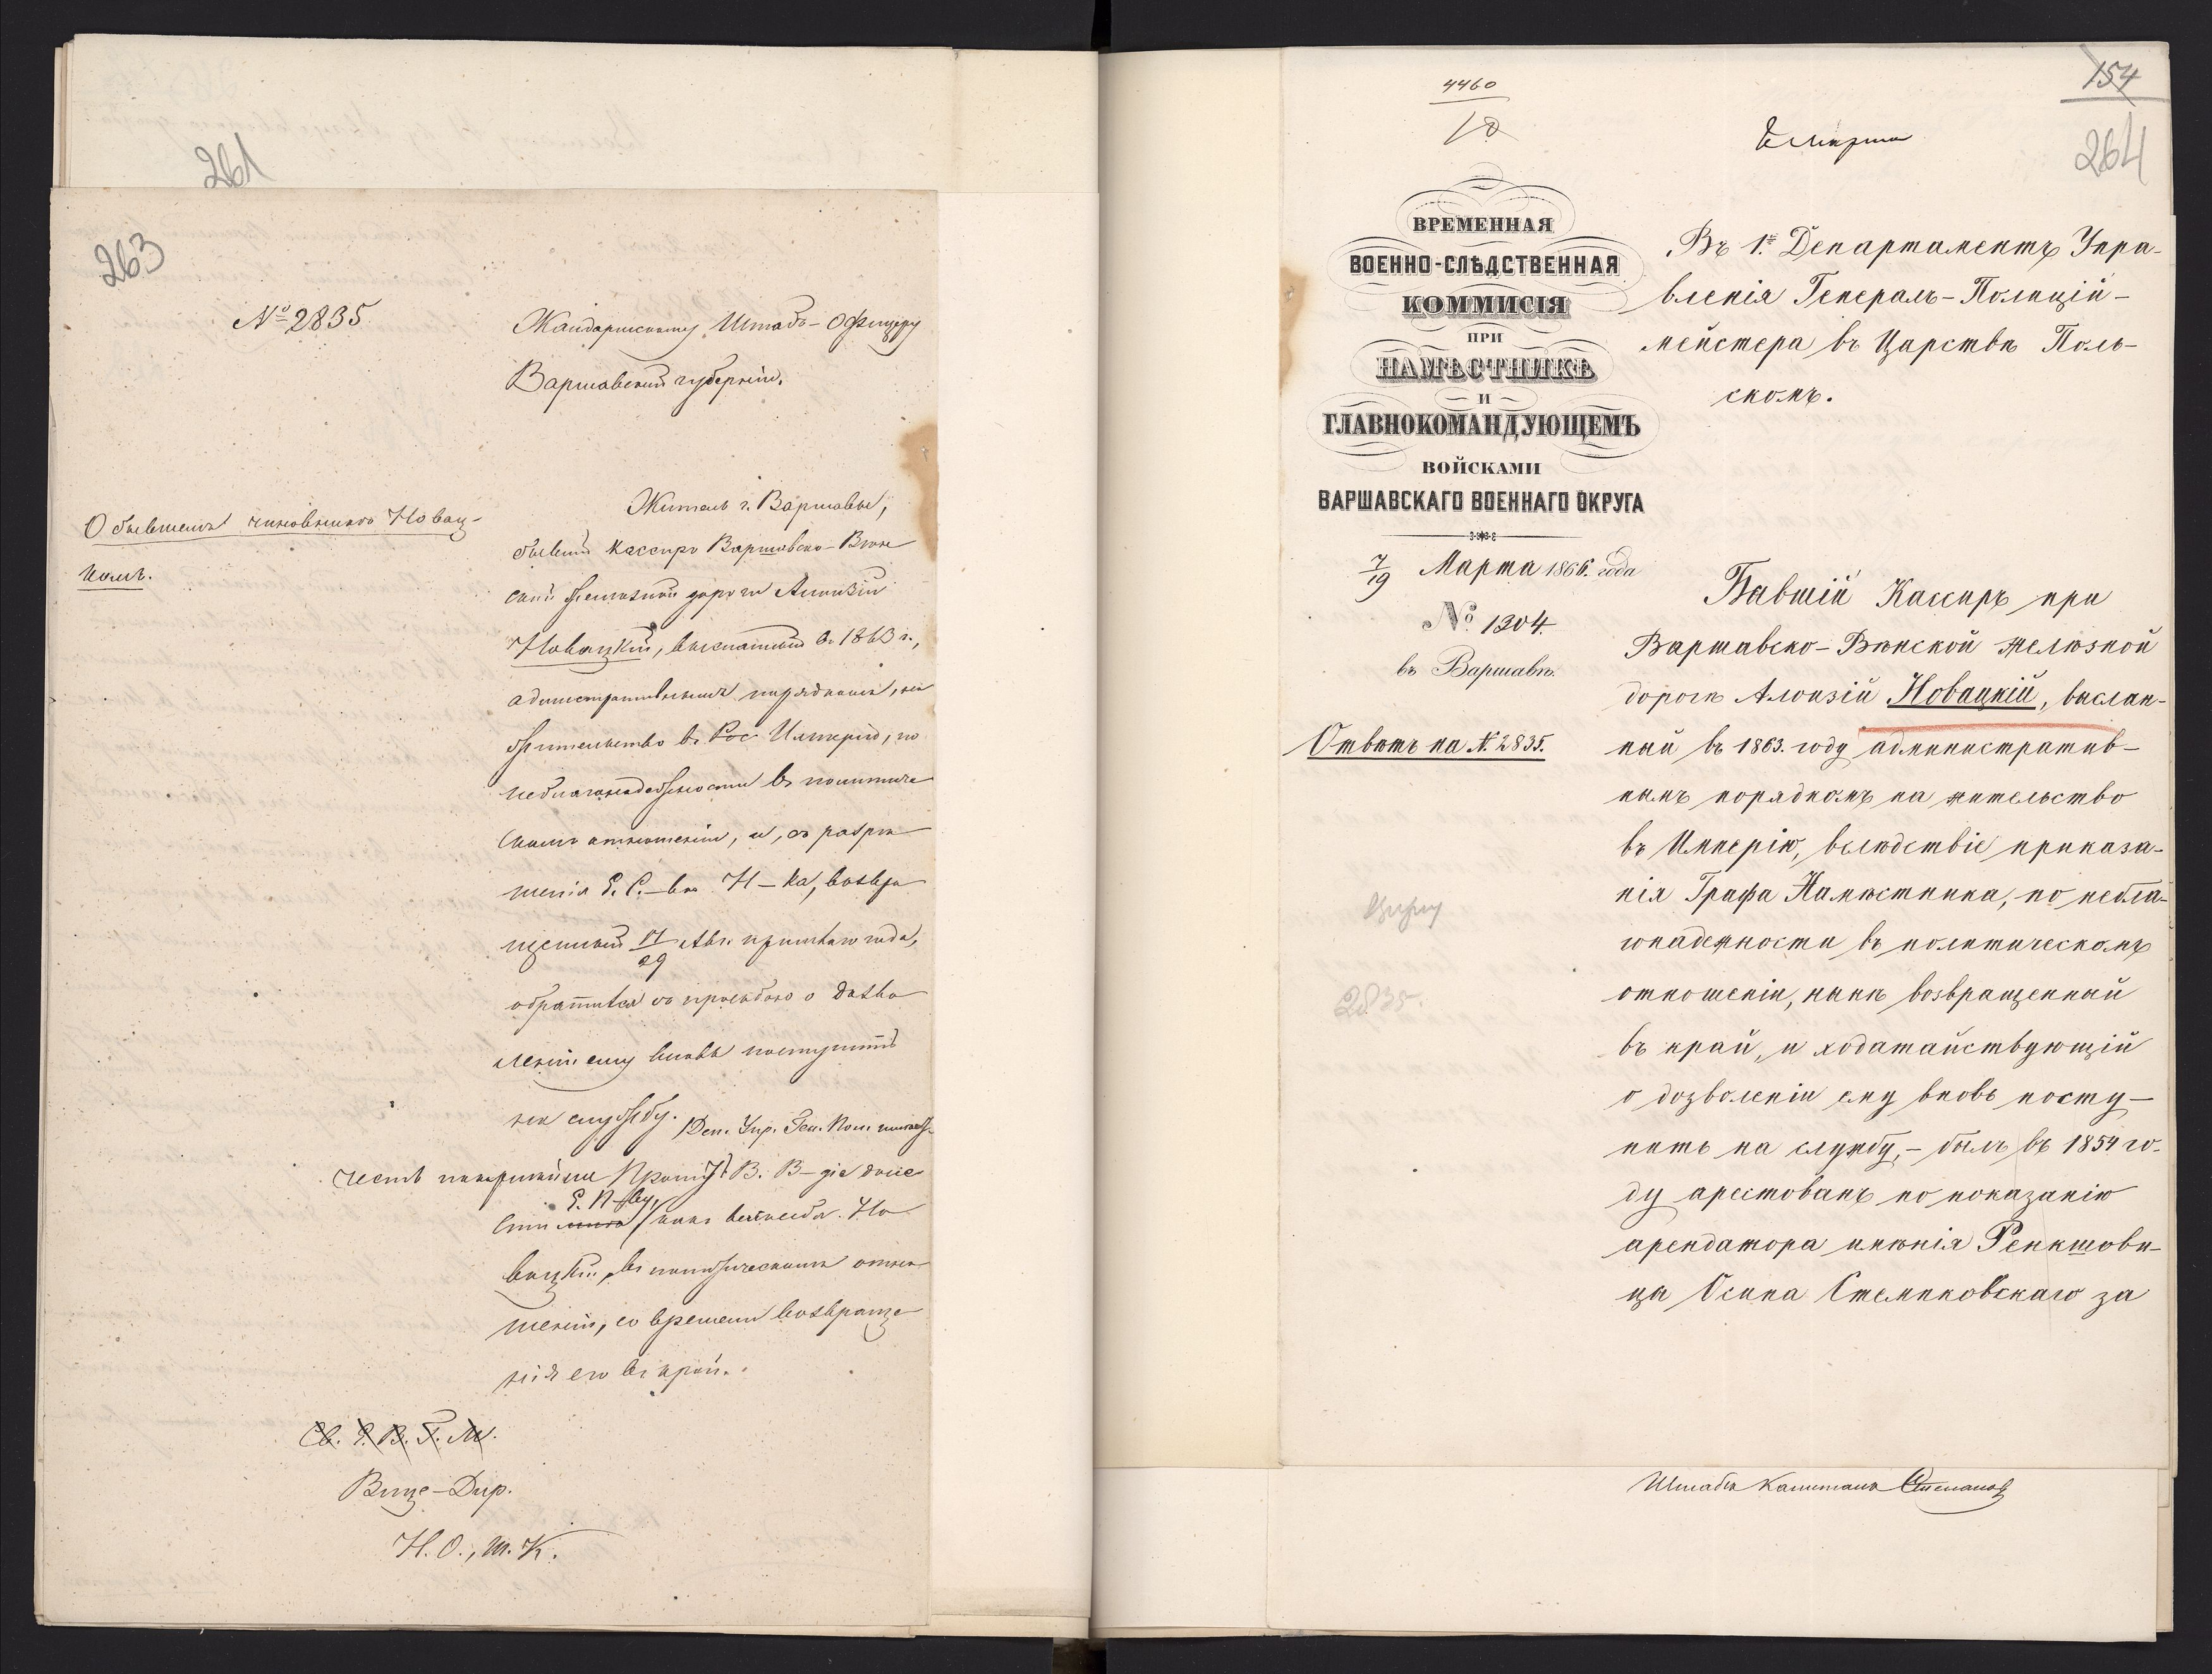 261
263
№ 2835
Жандармскому Штабъ-Офицеру
Варшавской губерніи.
О бывшемъ чиновникѣ Новац-
комъ.
Житель г. Варшавы,
бывшій Кассиръ Варшавско-Вѣн
ской желѣзной дороги Алоизій
Новацкій, высланный въ 1863 г.,
административнымъ порядкомъ, на
жительство въ Рос. Имперію, по
неблагонадежности въ политиче
скомъ отношеніи, и, съ разрѣ
шенія Е. С.-ва Н-ка, возвра
щенный 17/29 Авг. прошлаго года,
обратился съ просьбою о дозво
леніи ему вновь поступить
на службу. 1 Деп. Упр. Ген. Пол. имѣетъ
честь покорнѣйше просить В. В-діе доне
сти Е. П-ву, какъ велъ себя Но
вацкій, въ политическомъ отно
шеніи, со времени возвраще
нія его въ край.
Св. Е. В. Г. М.
Вице-Дир.
Н. О., Ш. К.
4460
10
8 Марта
154
264
ВРЕМЕННАЯ
ВОЕННО-СЛѢДСТВЕННАЯ
КОММИСІЯ
ПРИ
НАМѢСТНИКѢ
И
ГЛАВНОКОМАНДУЮЩЕМЪ
ВОЙСКАМИ
ВАРШАВСКАГО ВОЕННАГО ОКРУГА
7/19 Марта 1866. года
№ 1204.
въ Варшавѣ.
Отвѣтъ на № 2835.
2835.
Въ 1й Департаментъ Упра-
вленія Генералъ-Полицій-
мейстера въ Царствѣ Поль-
скомъ.
Бывшій Кассиръ при
Варшавско-Вѣнской желѣзной
дорогѣ Алоизій Новацкій, выслан-
ный въ 1863. году административ-
нымъ порядкомъ на жительство
въ Имперію, вслѣдствіе приказа-
нія Графа Намѣстника, по небла-
гонадежности въ политическомъ
отношеніи, нынѣ возвращенный
въ край, и ходатайствующій
о дозволеніи ему вновь посту-
пить на службу, - былъ въ 1854 го-
ду арестованъ по показанію
арендатора имѣнія Ренкшови-
цы Осипа Стемпковскаго за
Штабсъ Капитанъ